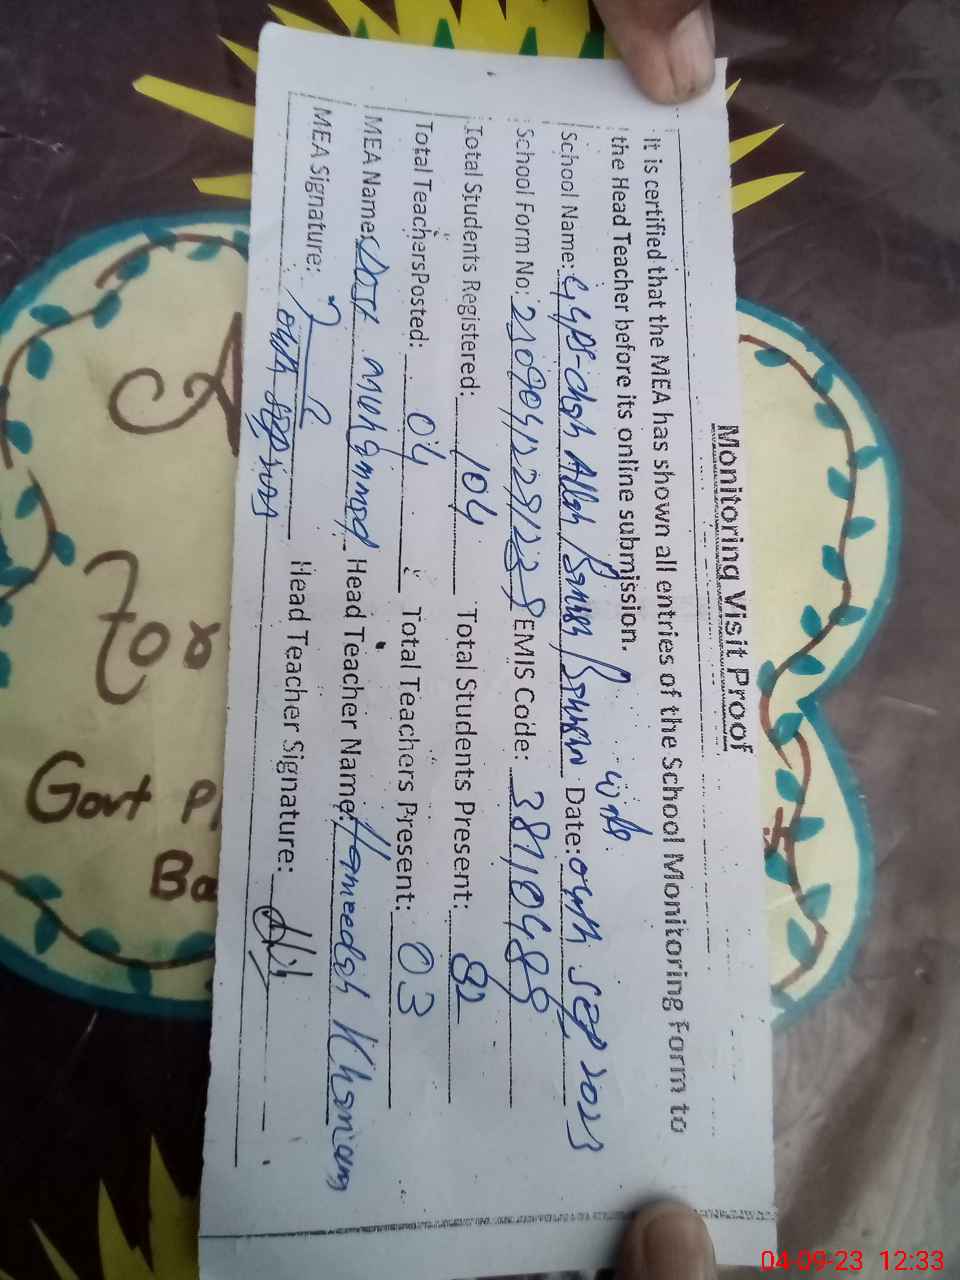 Monitoring Visit Proof
It is certified that the MEA has shown all entries of the School Monitoring Form to
the Head Teacher before its online submission.
School Name: GGPS-Chah Allah Date: 04th Sep 2023
School Form No: EMIS Code: 38110488
Total Students Registered: 104 Total Students Present: 82
Total Teachers Posted: 04 Total Teachers Present: 03
MEA Name: Muhammad Head Teacher Name: Hameedah Khanam
MEA Signature: Head Teacher Signature:
04th Sep 2023
A
For
Govt P
Ba
04-09-23 12:33